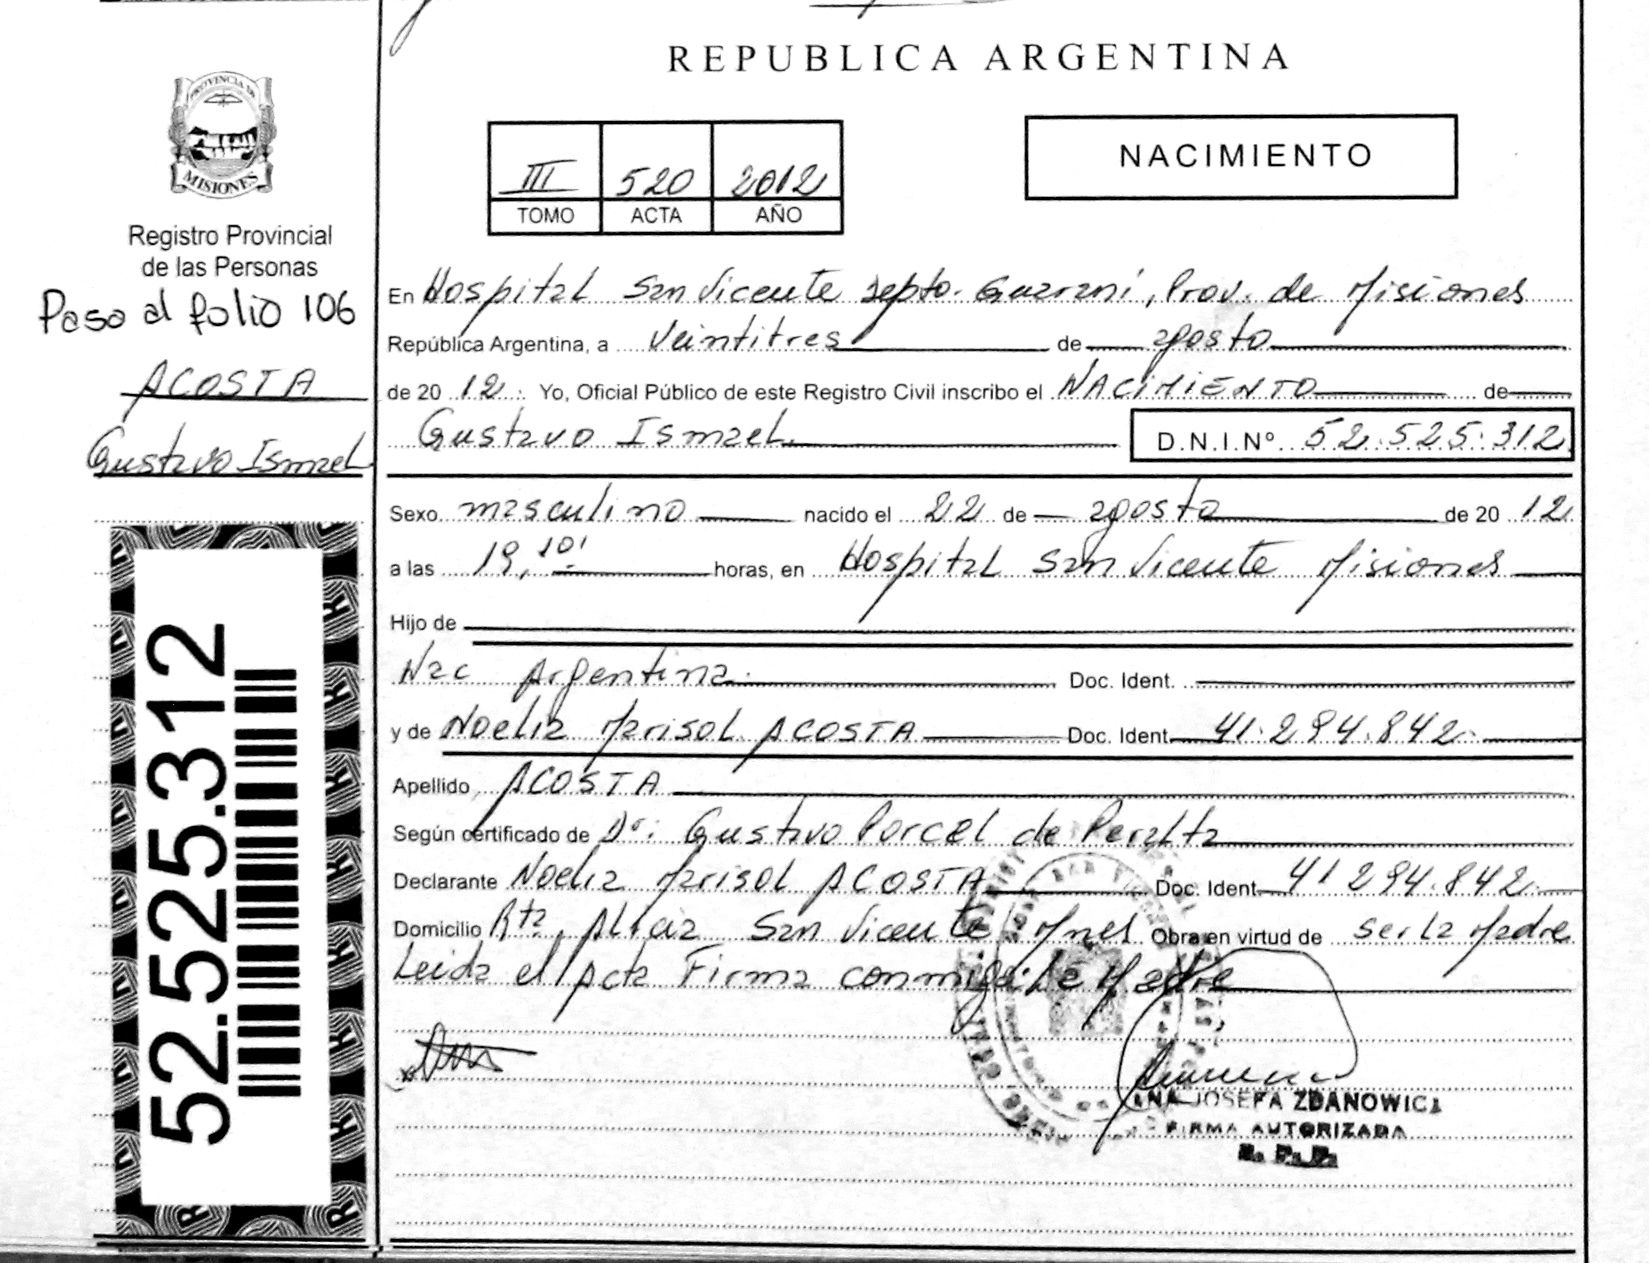 REPUBLICA ARGENTINA
PROVINCIA DE
MISIONES
Registro Provincial
de las Personas
Paso al folio 106
ACOSTA
Gustavo Ismael
52.525.312
III 520 2012
TOMO ACTA AÑO
NACIMIENTO
En Hospital San Vicente Depto. Guaraní, Prov. de Misiones
República Argentina, a Veintitres de agosto
de 20 12. Yo, Oficial Público de este Registro Civil inscribo el NACIMIENTO de
Gustavo Ismael D.N.I.Nº 52.525.312
Sexo masculino nacido el 22 de agosto de 20 12
a las 19,10' horas, en Hospital San Vicente Misiones
Hijo de
Nac Argentina. Doc. Ident.
y de Noelia Marisol ACOSTA Doc. Ident. 41.294.842.
Apellido ACOSTA
Según certificado de Dr: Gustavo Porcel de Peralta
Declarante Noelia Marisol ACOSTA Doc. Ident. 41 294.842
Domicilio San Vicente Mnes Obra en virtud de ser la Madre
Leida el Acta Firma conmigo la Madre
ANA JOSEFA ZDANOWICZ
FIRMA AUTORIZADA
R. P. P.